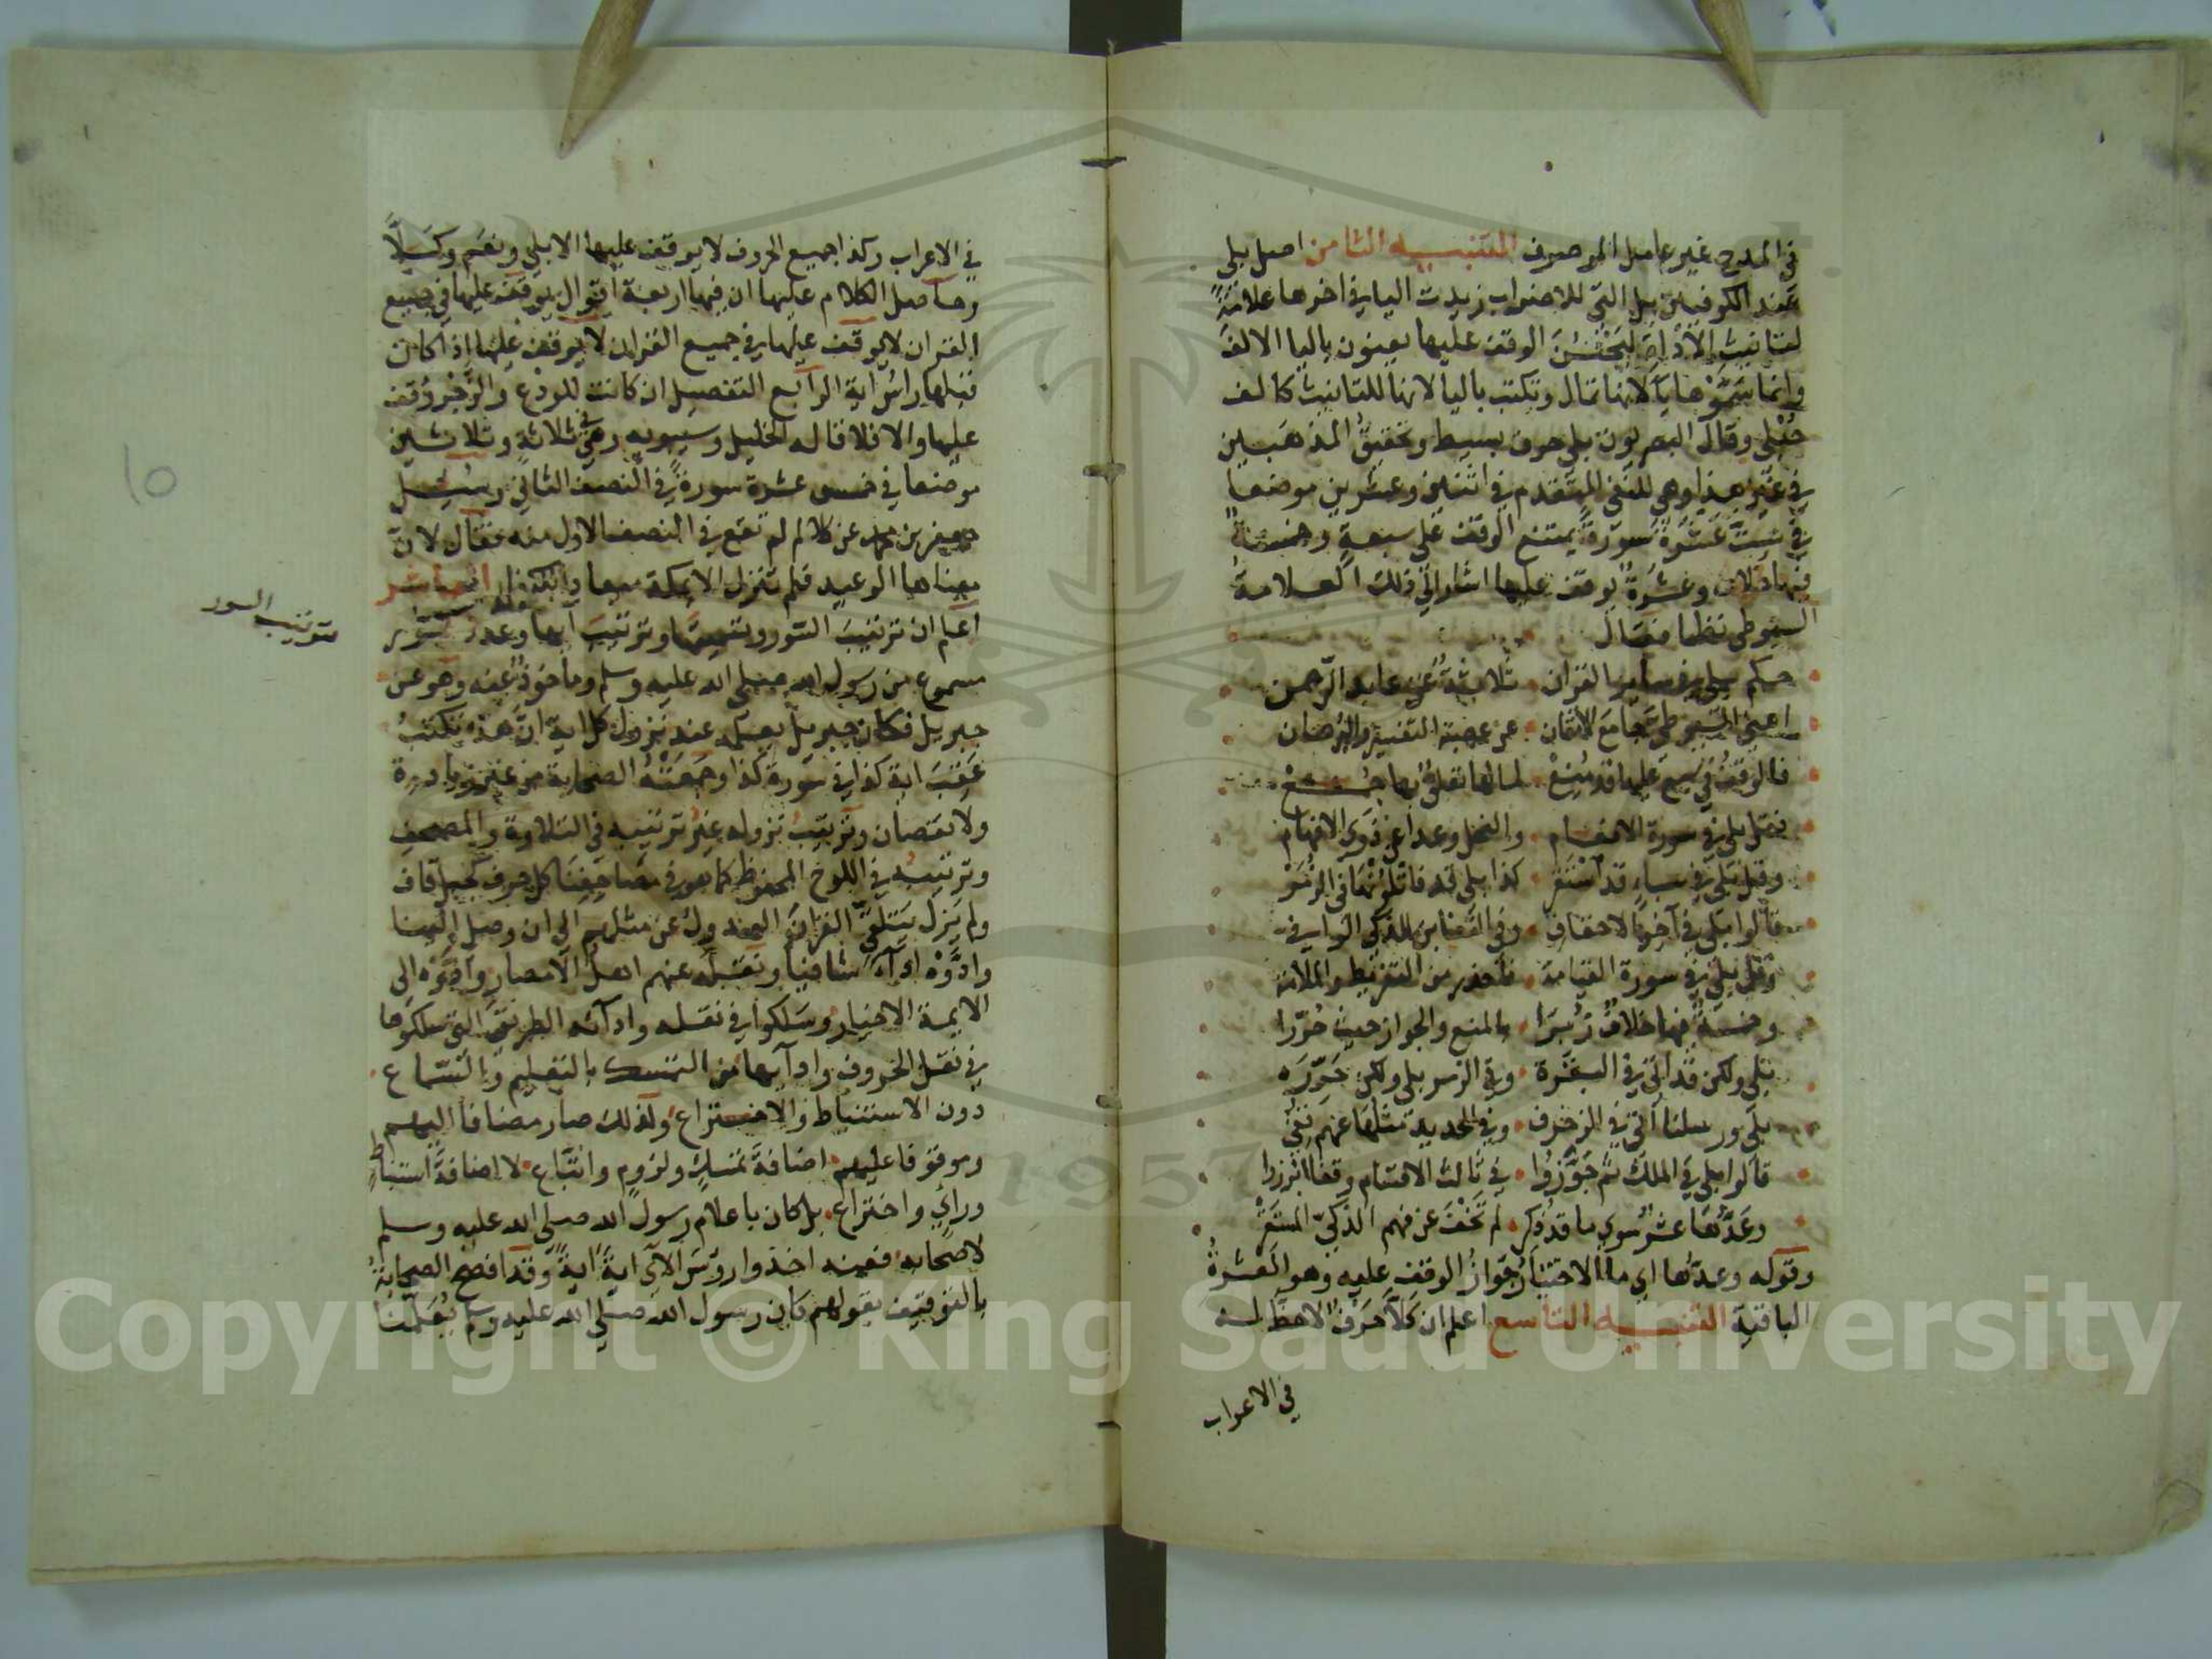 في المدح غير عامل الموصوف التنبيه الثامن اصل بلى
عند الكوفيين بل التي للاضراب زيدت اليا في اخرها علامةً
لتانيث الأداة ليَحْسُنَ الوقف عليها يعنون باليا الالف
وانما سَمَّوْها ياً لانها تمال وتكتب باليا لانها للتانيث كالف
حُبْلى وقال البصريون بلى حرف بسيط وتحقيقُ المذهبين
في غير هذا وهي للنفي المتقدم في اثنين وعشرين موضعا
في سِتَّ عَشَرَةَ سورَةً يمتنع الوقف على سبعةٍ وخمسةٌ
فيها خلاف وعشرَةٌ يوقف عليها اشار الى ذلك العلامة
السيوطي نظما فقال
حكم بلى في ساير القرآن ثلاثةٌ عن عابد الرحمن
اعني السيوطي جامع الاتقان عن عصبة التفسير والبرهان
فالوقف في سبع عليها قد مُنِعْ لما لها تعلقٌ بما جُمِعْ
قل بلى في سورة الانعام والنحل وعدا عن ذوي الافهام
وقل بلى في سباءٍ قد استقر كذا بلى قد فاتلوَنْها في الزُّمَرْ
قالوا بلى في آخر الاحقاف وفي التغابن للذكي الوافي
وقل بلى في سورة القيامة فاحذر من التفريط والملامة
وخمسةٌ فيها خلافٌ زُبِرَا بالمنع والجواز حيث حُرِّرا
بلى ولكن قد اتى في البقرة وفي الزمر بلى ولكن حَرَّرَه
بلى ورسلنا اتى في الزخرف وفي الحديد مثلها عنهم قفي
قالوا بلى في الملك ثم جَوَّزوا في ثالث الاقسام وقفا ابرزوا
وعَدُّها عشرٌ سوى ما قد ذُكِر لم تَخْفَ عن فهم الذكيّ المستقِرّ
وقوله وعدها اي ما الاختيارُ جوازُ الوقف عليه وهو العشرةُ
الباقية التنبيه التاسع اعلم ان كَلَّا حَرفٌ لاحظّ له
في الاعراب
في الاعراب وكذا جميع الحروف لا يوقف عليها الا بلى ونعم وكَلَّا
وحاصل الكلام عليها ان فيها اربعة اقوال يوقف عليها في جميع
القرآن لا يوقف عليها في جميع القرآن لا يوقف عليها اذا كان
قبلها راسُ اية الرابع التفصيل ان كانت للردع والزَّجْر وُقف
عليها والا فلا قاله الخليل وسيبويه وهي في ثلاثة وثلاثين
موضعا في خمس عشرة سورةً في النصف الثاني وسُئِل
جعفر بن محمد عن كلا لم لم تقع في النصف الاول منه فقال لانّ
معناها الوعيد فلم تنزل الا بمكة ايعادا للكفار العاشر
اعلم ان ترتيبَ السور وتسميتها وترتيبَ آيها وعدد السور
ترتيب السور
مسموع من رسول الله صلى الله عليه وسلم وماخوذٌ عنه وهو عن
جبريل فكان جبريل يعلمه عند نزول كل اية انَّ هذه تكتبُ
عَقِبَ اية كذا في سورة كذا وجمعَتْهُ الصحابة من غير زيادة
ولا نقصان وترتيبُ نزوله غيرُ ترتيبه في التلاوة والمصحف
وترتيبُه في اللوح المحفوظ كما هو في مصاحفنا كل حرف كجبل قاف
ولم يَزل يَتَلَقَّى القرآنَ العدولُ عن مثلهم الى ان وصل الينا
وادَّوْه اداءً شافيا ونقله عنهم اهلُ الامصار وادَّوْه الى
الايمة الاخيار وسَلكوا في نقله وادآئه الطريقَ التي سلكوها
في نقل الحروف وادآيها من التمسك بالتعليم والسّماع
دون الاستنباط والاختراع ولذلك صار مضافا اليهم
وموقوفا عليهم اضافةَ تمسكٍ ولزومٍ واتّباع لا اضافةَ استنباطٍ
ورايٍ واختراع بل كان باعلام رسول الله صلى الله عليه وسلم
لاصحابه فعنه اخذوا روسَ الآي ايةً ايةً وقد افصح الصحابةُ
بالتوقيف بقولهم كان رسول الله صلى الله عليه وسلم يُعَلّمنا
Copyright © King Saud University
1957